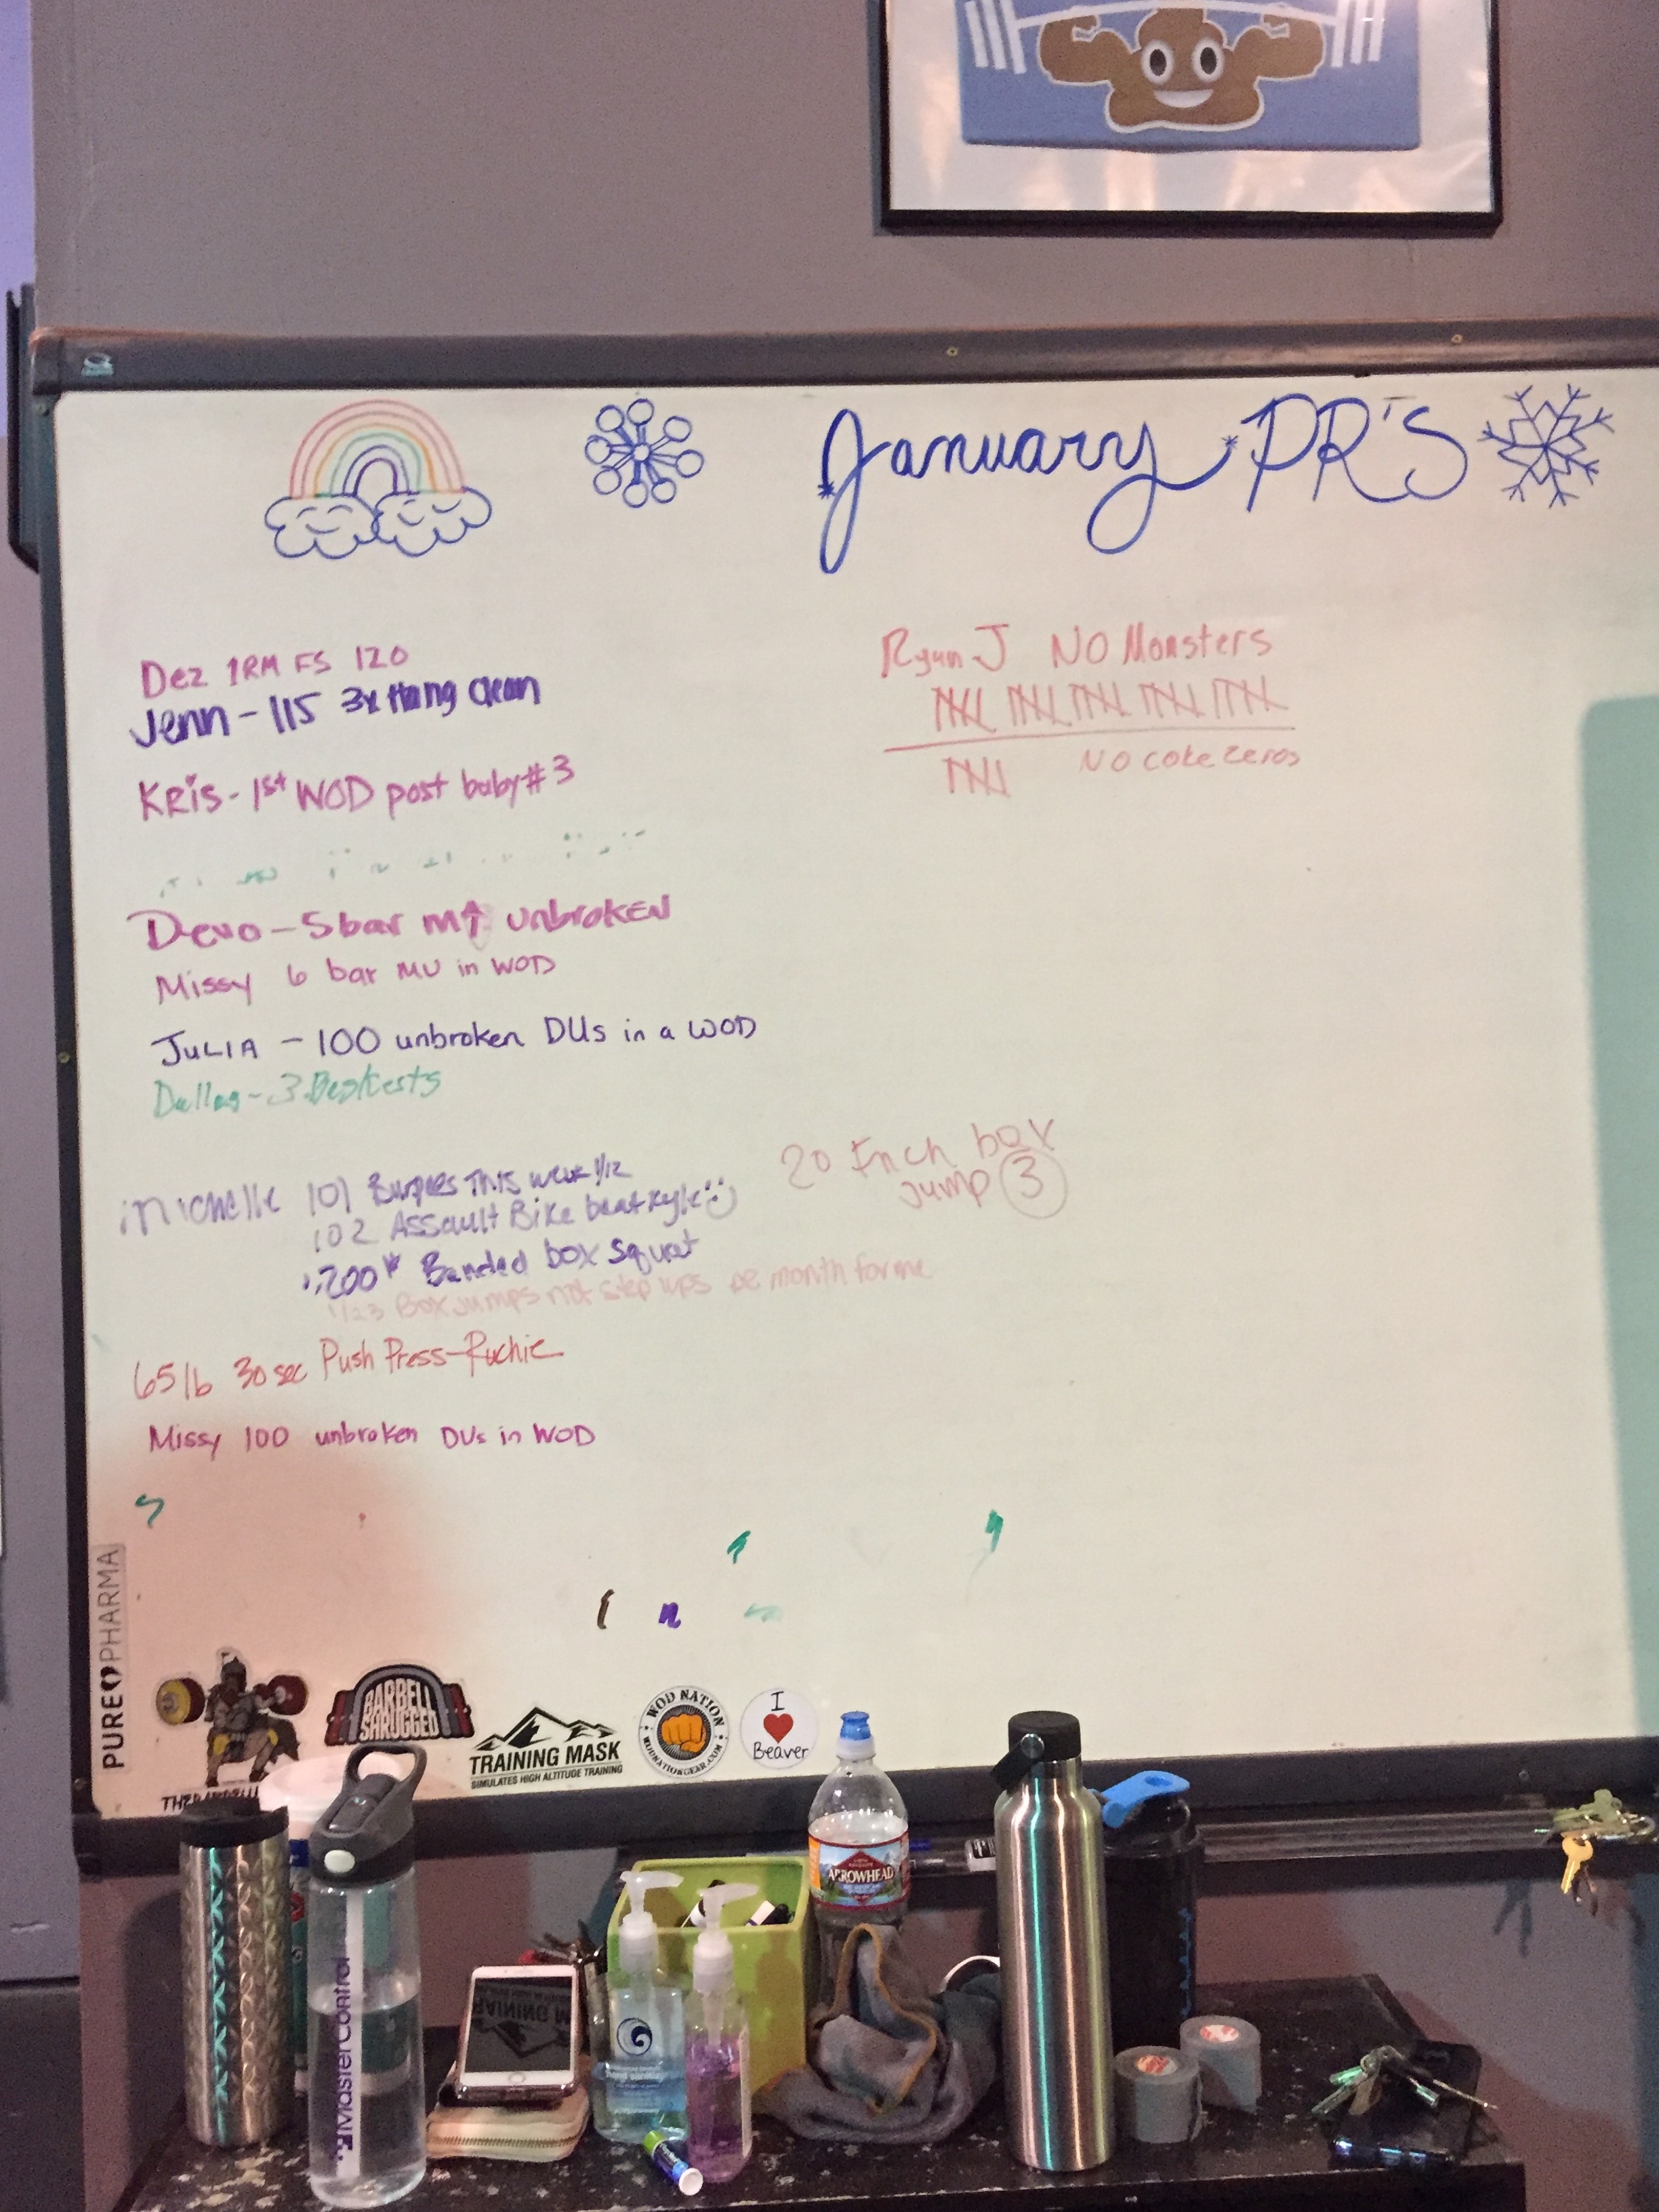 January PR'S
Dez 1RM FS 120
Jenn - 115 3x Hang Clean
KRiS - 1st WOD post baby #3
Devo - 5 bar m↑ unbroken
Missy 6 bar MU in WOD
JULIA - 100 unbroken DUs in a WOD
Dallas - 3
Michelle 101 Burpees This week 1/12
102 Assault Bike beat Kyle
200# Banded box Squat
1/23 Box jumps not step ups month for me
65lb 30 sec Push Press -
Missy 100 unbroken DUs in WOD
Ryan J NO Monsters
NO coke zeros
20 Inch box
jump 3
PURE PHARMA
BARBELL
SHRUGGED
TRAINING MASK
SIMULATES HIGH ALTITUDE TRAINING
WOD NATION
WODNATIONGEAR.COM
I
Beaver
ARROWHEAD
MasterControl